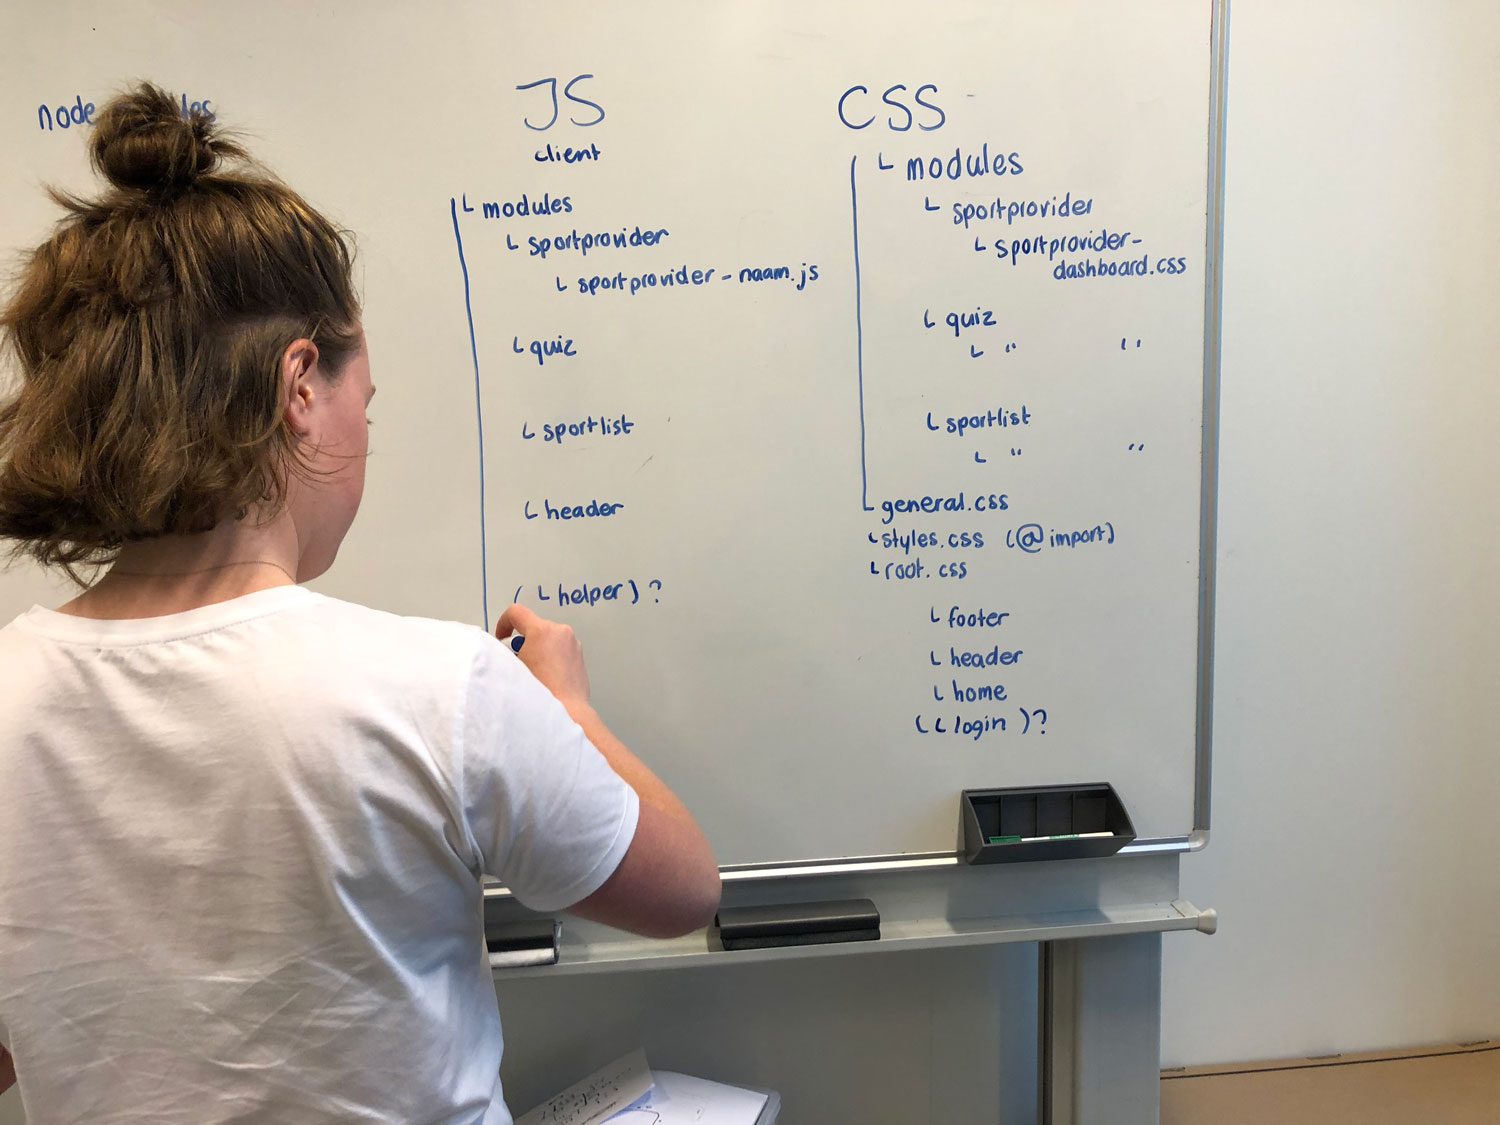 node
JS
client
└ modules
└ sportprovider
└ sportprovider-naam.js
└ quiz
└ sportlist
└ header
( └ helper ) ?
CSS
└ modules
└ sportprovider
└ sportprovider-
dashboard.css
└ quiz
└ " "
└ sportlist
└ " "
└ general.css
└ styles.css (@import)
└ root.css
└ footer
└ header
└ home
( └ login )?